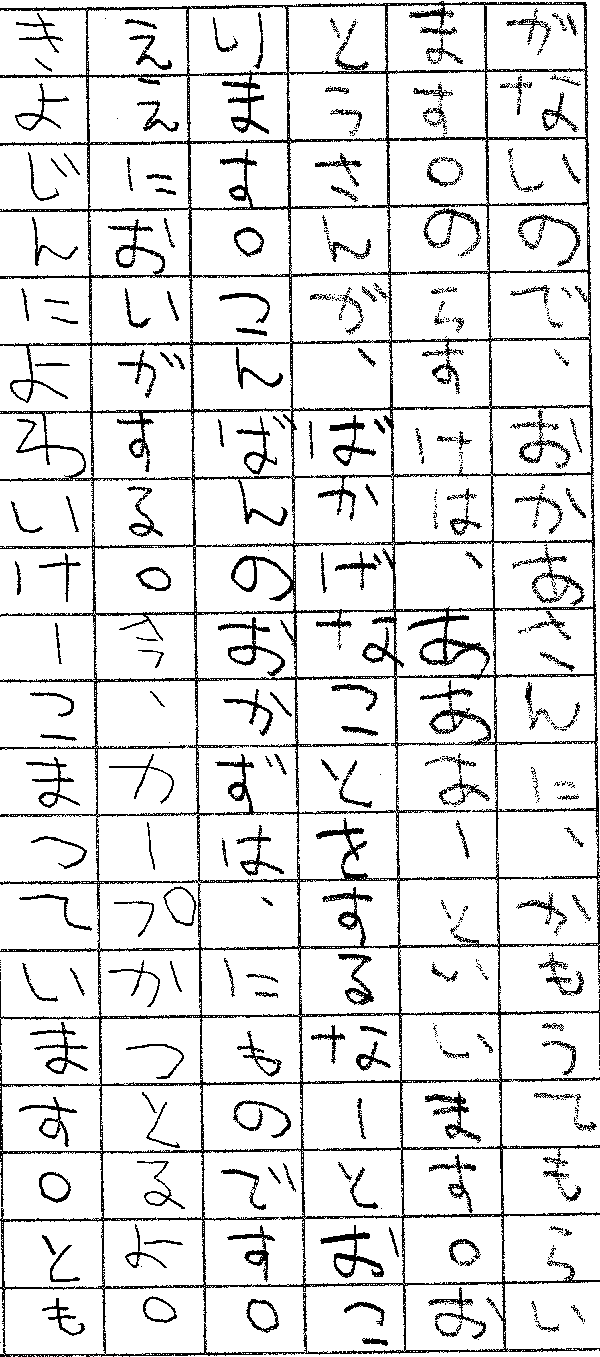 がないので、おかあさんに、かもってもらい
ます。のらすには、ああおーといいます。お
とうさんが、ばかげなことをするなーとおこ
ります。こんばんのおかずは、にものです。
ええにおいがする。ラ、カープがつとるよ。
きよじんによわいけーこまつています。とも